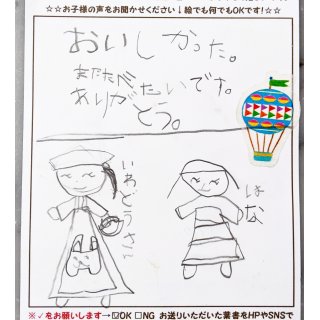 ☆☆お子様の声をお聞かせください↓絵でも何でもOKです!☆☆
おいしかった。
またたべたいです。
ありがとう。
いわとうさん
はな
※✓をお願いします→☑OK ☐NG お送りいただいた葉書をHPやSNSで